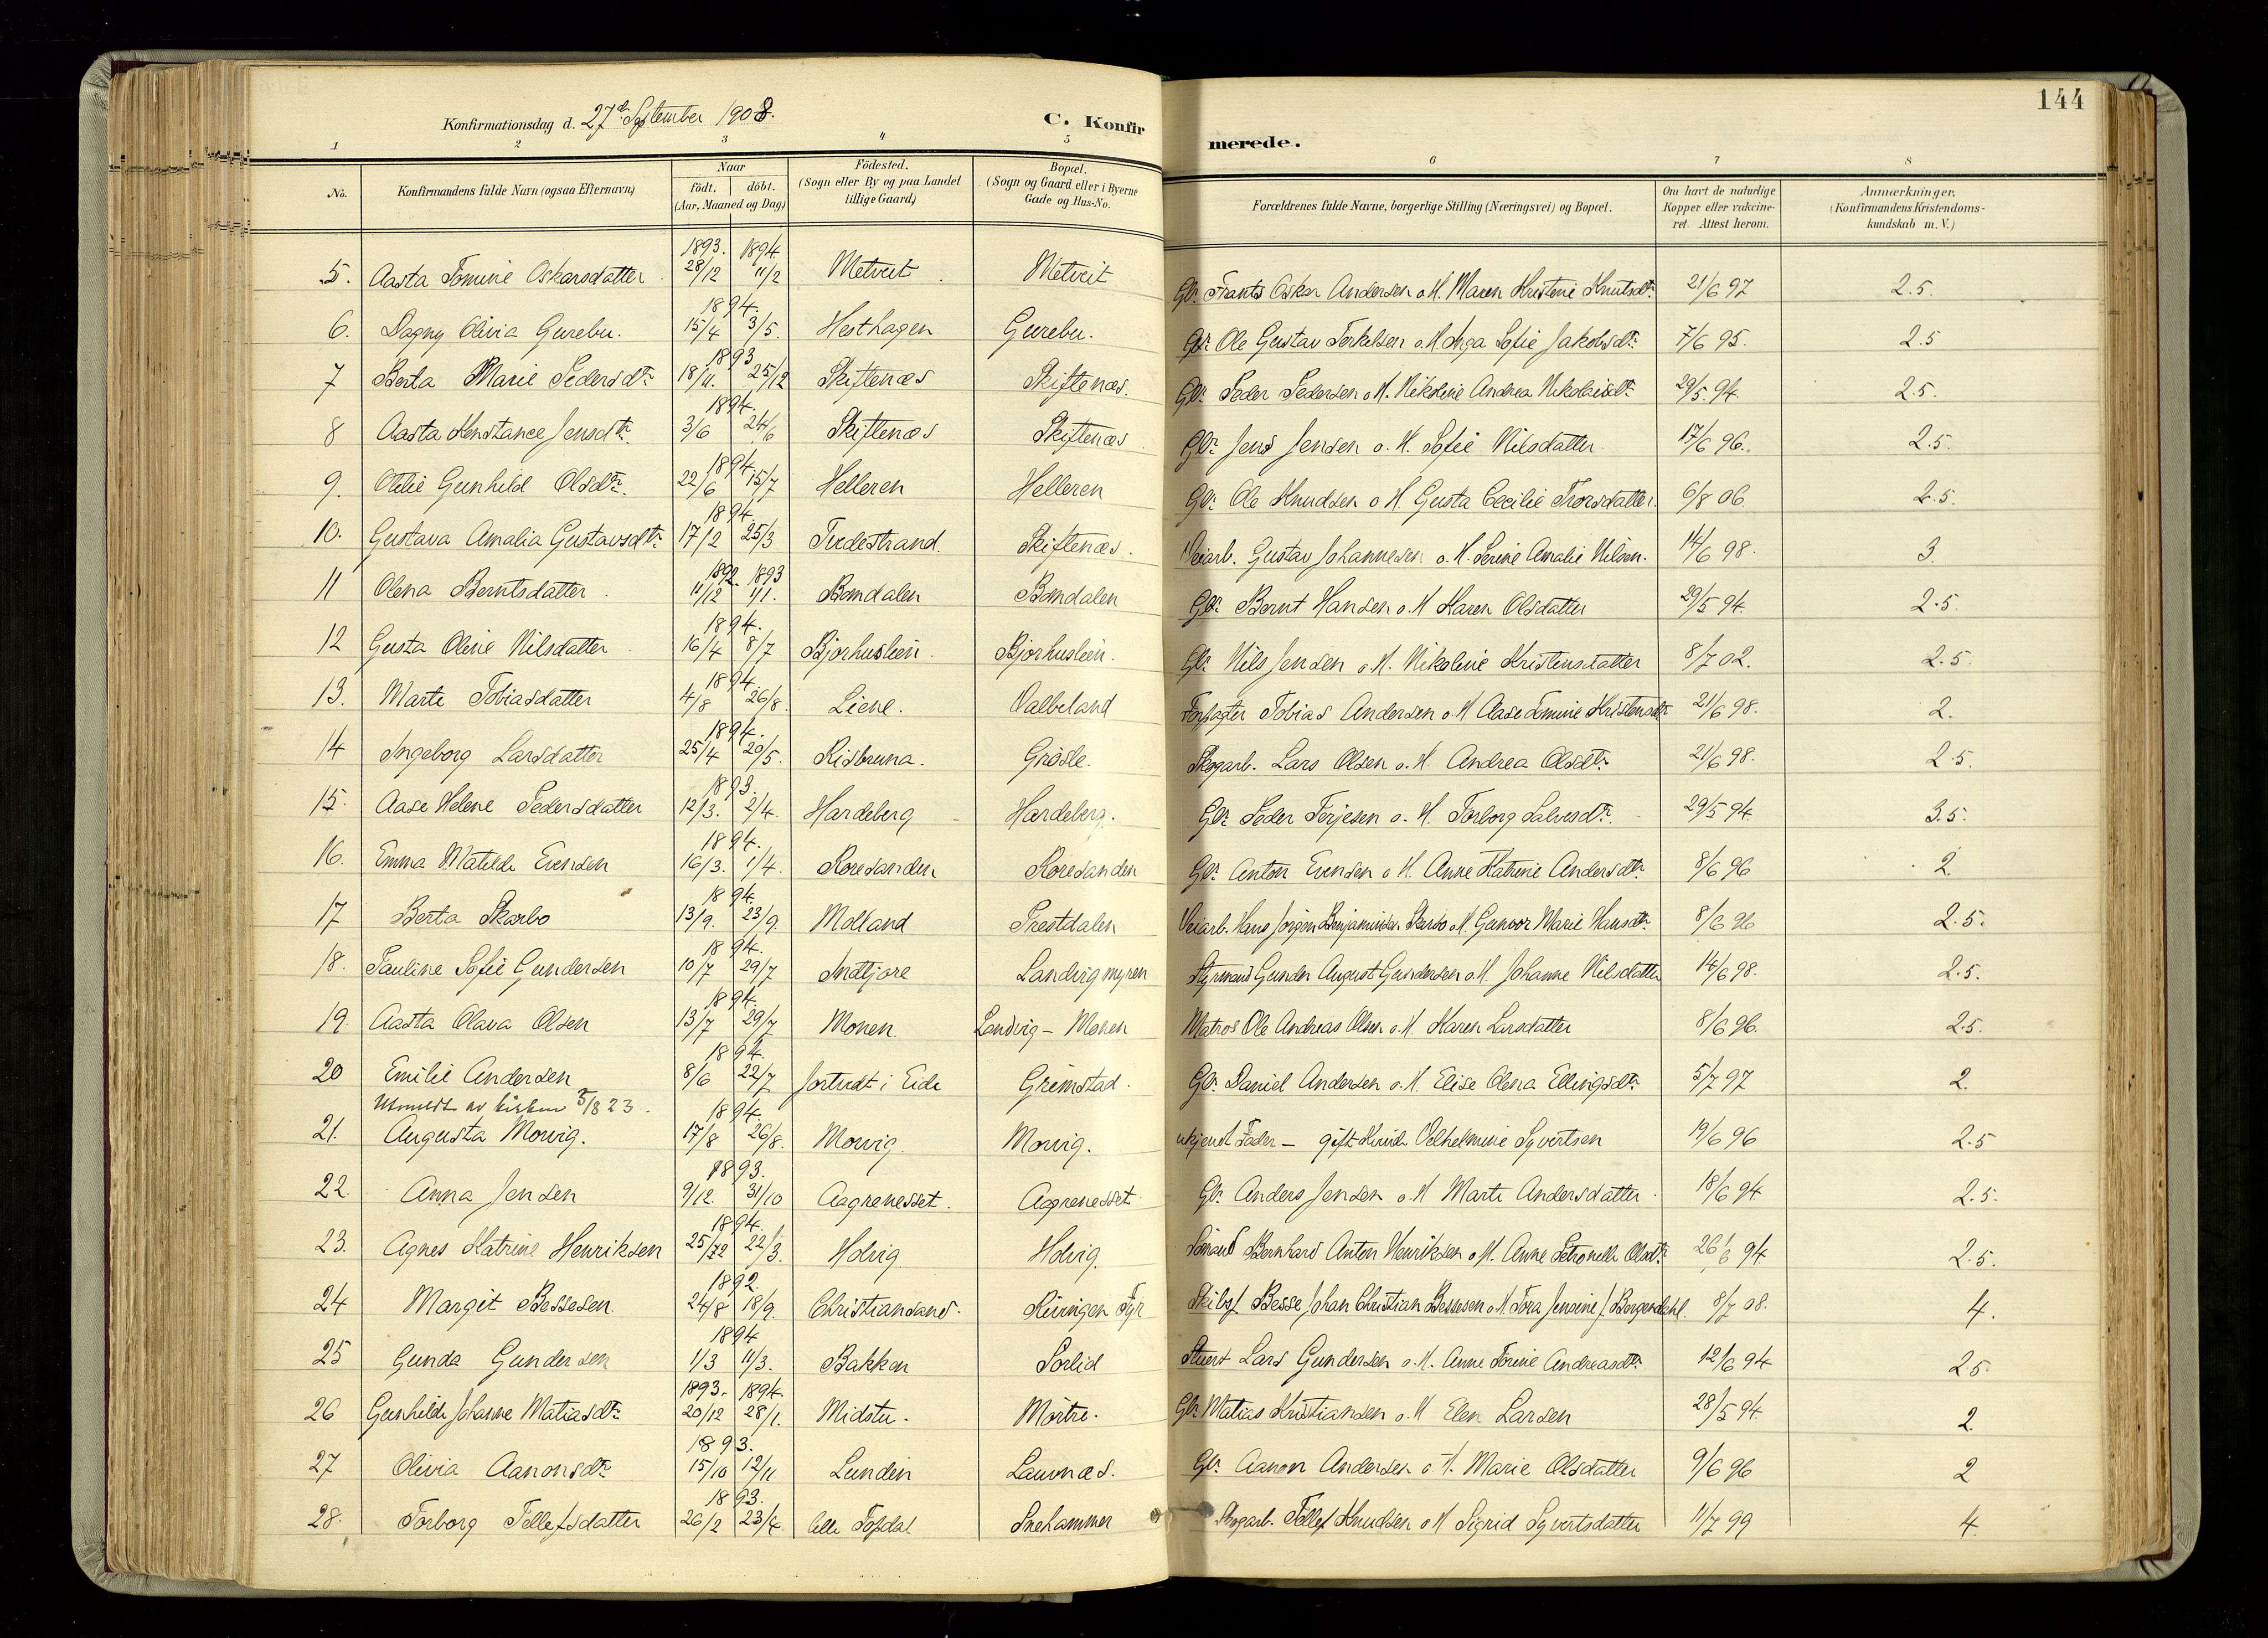 144
Konfirmationsdag d. 27de September 1908. C. Konfirmerede.
1 2 3 4 5 6 7 8
No. Konfirmandens fulde Navn (ogsaa Efternavn) Naar født. døbt. (Aar, Maaned og Dag.) Fødested. (Sogn eller By og paa Landet tillige Gaard) Bopæl. (Sogn og Gaard eller i Byerne Gade og Hus-No. Forældrenes fulde Navne, borgerlige Stilling (Næringsvei) og Bopæl. Om havt de naturlige Kopper eller vakcineret. Attest herom. Anmærkninger. (Konfirmandens Kristendomskundskab m. V.)
5. Aasta Tomine Oskarsdatter 1893. 28/12 1894 11/2 Metveit Metveit Gbr. Frants Oskar Andersen o. H. Maren Kristine Knutsdtr. 21/6 97 2.5.
6. Dagny Olivia Gurebu. 1894. 15/4 3/5. Hesthagen Gurebu. Gbr. Ole Gustav Terkelsen o. H. Inga Sofie Jakobsdtr. 7/6 95. 2.5
7 Berta Marie Pedersdtr. 1893 18/11. 25/12 Skiftenæs Skiftenæs. Gbr. Peder Pedersen o. H. Nikoline Andrea Nikolaisdtr. 29/5. 94. 2.5.
8 Aasta Konstance Jensdtr. 1894. 3/6 24/6 Skiftenæs Skiftenæs Gbr. Jens Jensen o. H. Sofie Nilsdatter. 17/6 96. 2.5.
9. Otelie Gunhild Olsdtr. 1894. 22/6 15/7 Helleren Helleren Gbr. Ole Knudsen o H. Gusta Cecilie Thorsdatter. 6/8 06. 2.5.
10. Gustava Amalia Gustavsdtr. 1894. 17/2 25/3 Tvedestrand. Skiftenæs. Veiarb. Gustav Johannesen o. H. Serine Amalie Nilsen. 14/6 98. 3.
11 Olena Berntsdatter. 1892. 11/12 1893 1/1. Bomdalen Bomdalen Gbr. Bernt Hansen o. H Karen Olsdatter 29/5 94. 2.5.
12 Gusta Oline Nilsdatter. 1894. 16/4 8/7 Bjorhuslien. Bjorhuslien. Gbr. Nils Jensen o. H. Nikoline Kristensdatter 8/7 02. 2.5.
13. Marte Tobiasdatter 1894. 4/8 26/8. Liene. Valbeland Forpagter Tobias Andersen o. H Aase Tomine Kristensdtr 21/6 98. 2.
14 Ingeborg Larsdatter 1894. 25/4 20/5. Risbruna. Grøsle. Skogarb. Lars Olsen o. H. Andrea Olsdtr. 21/6 98. 2.5.
15. Aase Helene Pedersdatter 1893. 12/3. 2/4. Hardeberg Hardeberg. Gbr. Peder Terjesen o. H. Torborg Salvesdtr. 29/5 94. 3.5.
16. Emma Matilde Evensen 1894. 16/3. 1/4. Roresanden Roresanden Gbr. Anton Evensen o H. Anne Katrine Andersdtr. 8/6 96 2.
17 Berta Skarbo 1894. 13/9. 23/9. Molland Prestdalen Veiarb. Hans Jørgen Benjaminsen Skarbo o. H. Gunvor Marie Hansdtr. 8/6 96 2.5.
18. Pauline Sofie Gundersen 1894. 10/7 29/7 Indtjore Landvigmyren Styrmand Gunder August Gundersen o. H. Johanne Nilsdatter 14/6 98. 2.5.
19. Aasta Olava Olsen 1894. 13/7 29/7 Monen Landvig - Monen Matros Ole Andreas Olsen o. H. Karen Larsdatter 8/6 96. 2.5.
20 Emilie Andersen 1894. 8/6 22/7 Jortvedt i Eide Grimstad. Gbr. Daniel Andersen o. H. Elise Olena Ellingsdtr. 5/7 97 2.
Utmeldt av kirken 3/8 23.
21. Augusta Morvig. 1894. 17/8 26/8. Morvig Morvig. ukjendt Fader - gift Kvinde Velhelmine Syvertsen 19/6 96 2.5
22. Anna Jensen 1893. 9/12. 31/10 Aagrenesset. Aagrenesset. Gbr. Anders Jensen o. H Marte Andersdatter. 18/6 94. 2.5.
23. Agnes Katrine Henriksen 1894. 25/12 22/3. Holvig Holvig. Sømand Bernhard Anton Henriksen o. H. Anne Petronelle Olsdtr 26/6 94. 2.5.
24 Margit Bessesen. 1892. 24/8 18/9. Christiansand. Rivingen Fyr Skibsf. Besse Johan Christian Bessesen o. H. Tora Jensine f. Borgendahl. 8/7 08. 4.
25 Gunda Gundersen 1894 1/3 11/3. Bakken Sorlid Stuert Lars Gundersen o. H. Anne Torine Andreasdtr. 12/6 94 2.5.
26 Gunhilde Johanne Matiasdtr. 1893. 20/12 1894. 28/1. Midstu. Mortre. Gbr. Matias Kristiansen o. H Elen Larsen 28/5 94. 2.
27 Olivia Aanonsdtr 1893. 15/10 12/11 Lunden Lauvnæs. Gbr. Aanon Andersen o. H. Marie Olsdatter 9/6 96 2
28. Torborg Tellefsdatter 1893. 26/2 23/4. Øvre Topdal Snehammer Skogarb. Tellef Knudsen o H Sigrid Syvertsdatter 11/7 99 4.